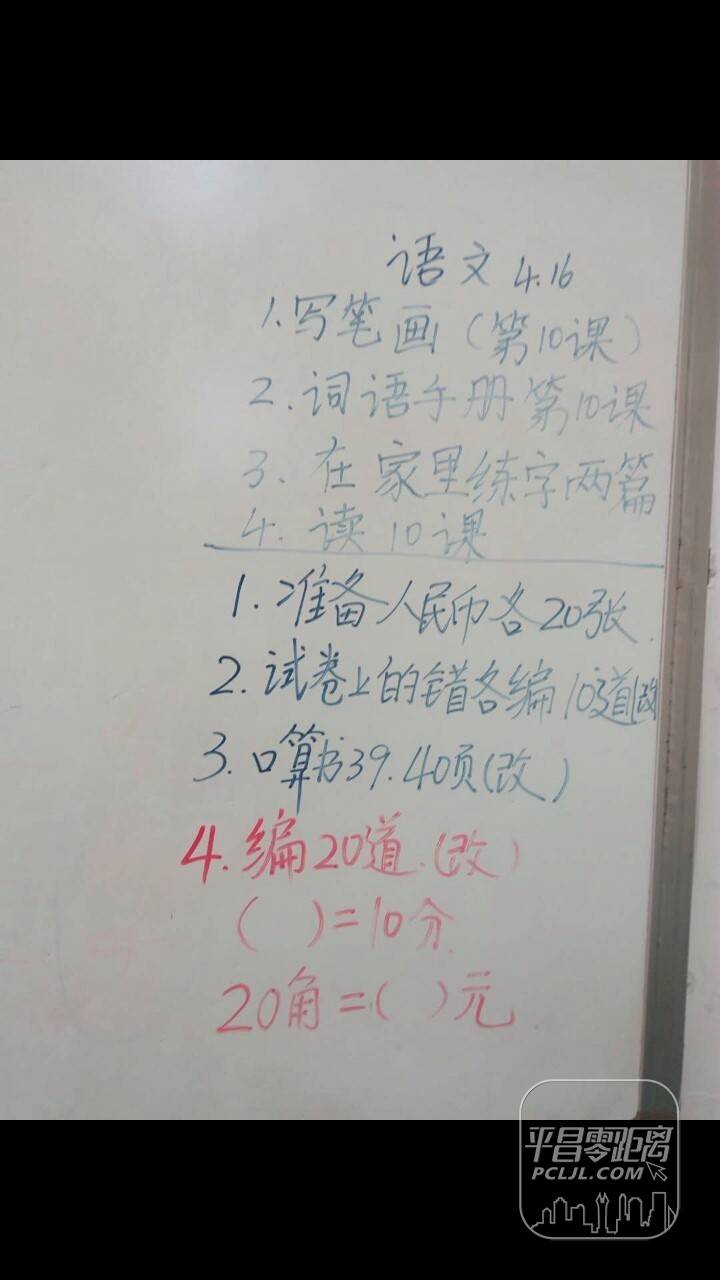 语文 4.16
1.写笔画（第10课）
2.词语手册第10课
3.在家里练字两篇
4.读10课
1.准备人民币各20张.
2.试卷上的错各编10道改
3.口算书39.40页(改)
4.编20道.(改)
( )=10分
20角=( )元
平昌零距离
PCLJL.COM